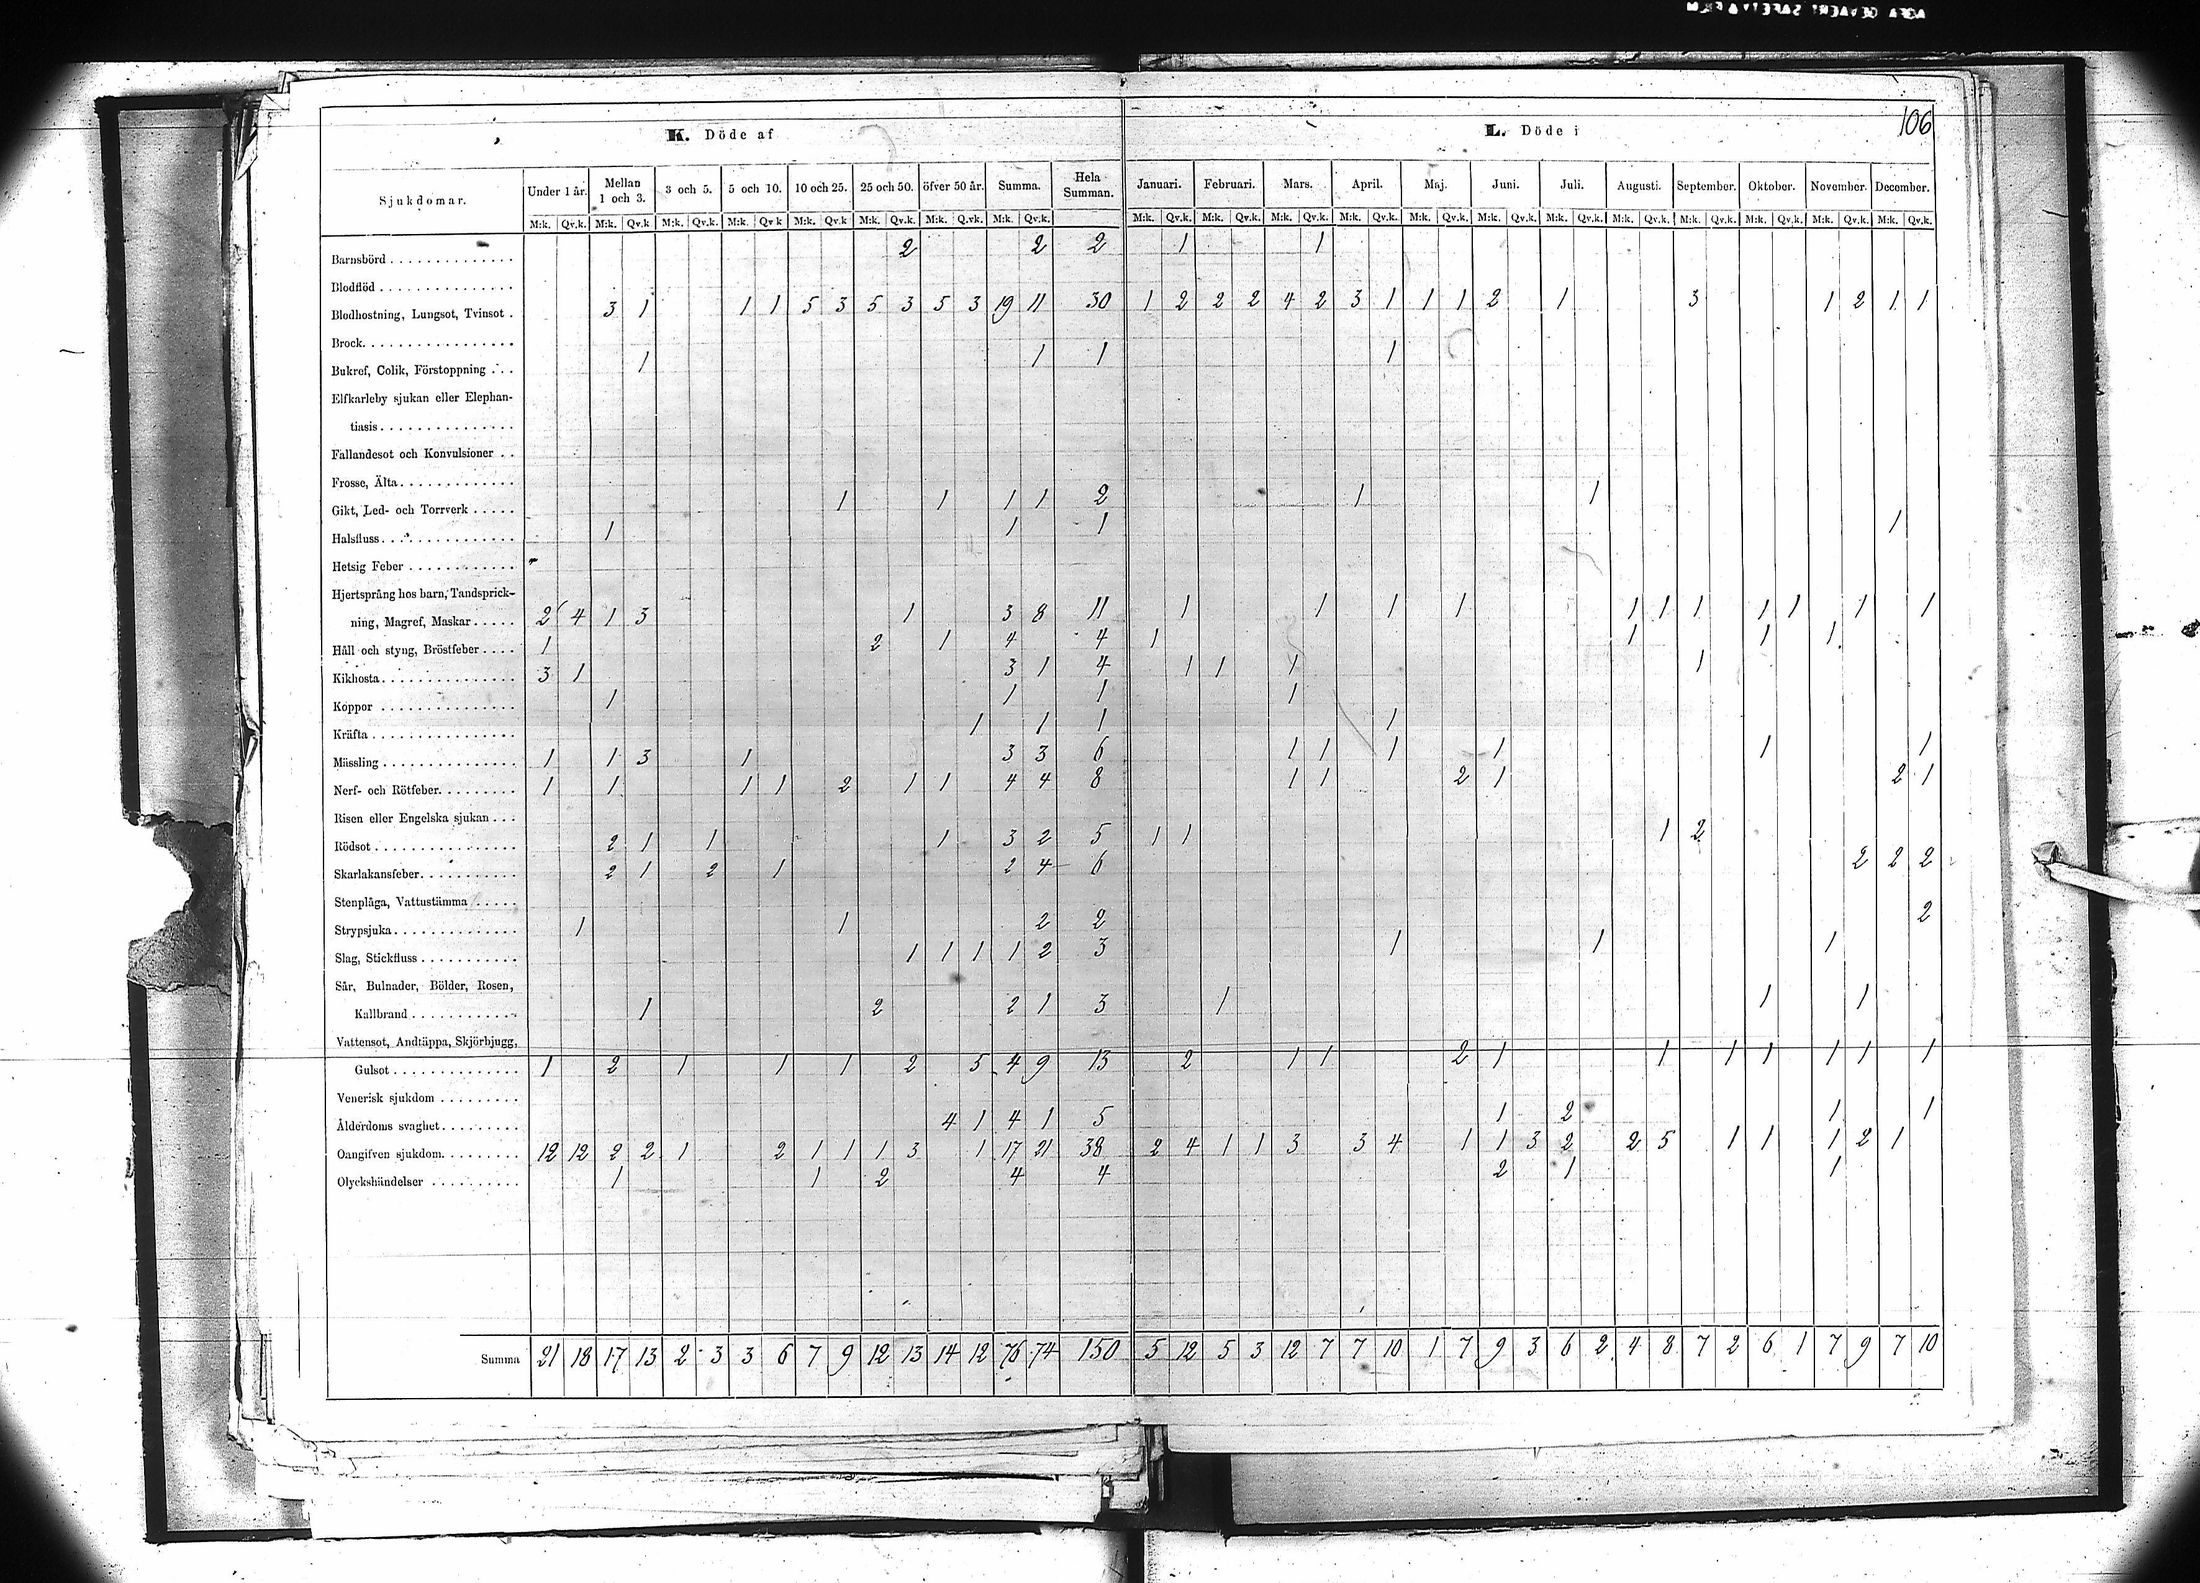 106
K. Döde af
L. Döde i
Sjukdomar. Under 1 år. Mellan 1 och 3. 3 och 5. 5 och 10. 10 och 25. 25 och 50. öfver 50 år. Summa. Hela Summan. Januari. Februari. Mars. April. Maj. Juni. Juli. Augusti. September. Oktober. November. December.
M:k. Qv.k. M:k. Qv.k M:k. Qv.k. M:k. Qv.k M:k. Qv.k M:k. Qv.k. M:k. Qv.k. M:k. Qv.k. M:k. Qv.k. M:k. Qv.k. M:k. Qv.k. M:k. Qv.k. M:k. Qv.k. M:k. Qv.k. M:k. Qv.k. M:k. Qv.k. M:k. Qv.k. M:k. Qv.k. M:k. Qv.k. M:k. Qv.k.
Barnsbörd 2 2 2 1 1
Blodflöd
Blodhostning, Lungsot, Tvinsot 3 1 1 1 5 3 5 3 5 3 19 11 30 1 2 2 2 4 2 3 1 1 1 2 1 3 1 2 1 1
Brock
Bukref, Colik, Förstoppning 1 1 1 1
Elfkarleby sjukan eller Elephan-
tiasis
Fallandesot och Konvulsioner
Frosse, Älta
Gikt, Led- och Torrverk 1 1 1 1 2 1 1
Halsfluss 1 1 1 1
Hetsig Feber
Hjertsprång hos barn, Tandsprick-
ning, Magref, Maskar 2 4 1 3 1 3 8 11 1 1 1 1 1 1 1 1 1 1 1
Håll och styng, Bröstfeber 1 2 1 4 4 1 1 1 1
Kikhosta 3 1 3 1 4 1 1 1 1
Koppor 1 1 1 1
Kräfta 1 1 1 1
Mässling 1 1 3 1 3 3 6 1 1 1 1 1 1
Nerf- och Rötfeber 1 1 1 1 2 1 1 4 4 8 1 1 2 1 2 1
Risen eller Engelska sjukan
Rödsot 2 1 1 1 3 2 5 1 1 1 2
Skarlakansfeber 2 1 2 1 2 4 6 2 2 2
Stenplåga, Vattustämma
Strypsjuka 1 1 2 2 2
Slag, Stickfluss 1 1 1 1 2 3 1 1 1
Sår, Bulnader, Bölder, Rosen,
Kallbrand 1 2 2 1 3 1 1 1
Vattensot, Andtäppa, Skjörbjugg,
Gulsot 1 2 1 1 1 2 5 4 9 13 2 1 1 2 1 1 1 1 1 1 1
Venerisk sjukdom
Ålderdoms svaghet 4 1 4 1 5 1 2 1 1
Oangifven sjukdom 12 12 2 2 1 2 1 1 1 3 1 17 21 38 2 4 1 1 3 3 4 1 1 3 2 2 5 1 1 1 2 1
Olyckshändelser 1 1 2 4 4 2 1 1
Summa 21 18 17 13 2 3 3 6 7 9 12 13 14 12 76 74 150 5 12 5 3 12 7 7 10 1 7 9 3 6 2 4 8 7 2 6 1 7 9 7 10